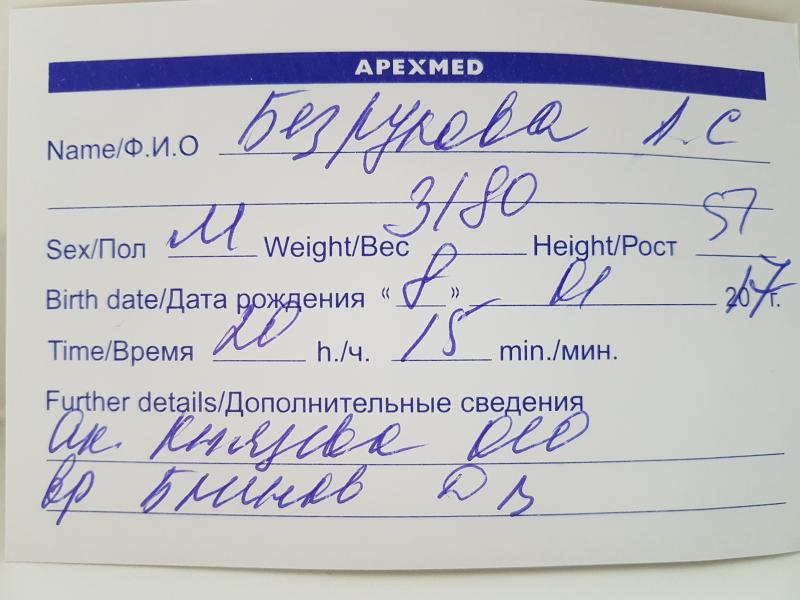 APEXMED
Name/Ф.И.О Безрукова А.С
Sex/Пол М Weight/Вес 3180 Height/Рост 51
Birth date/Дата рождения “ 8 ” 01 2017г.
Time/Время 20 h./ч. 15 min./мин.
Further details/Дополнительные сведения
Ак. Князева
Вр Блинов Д В